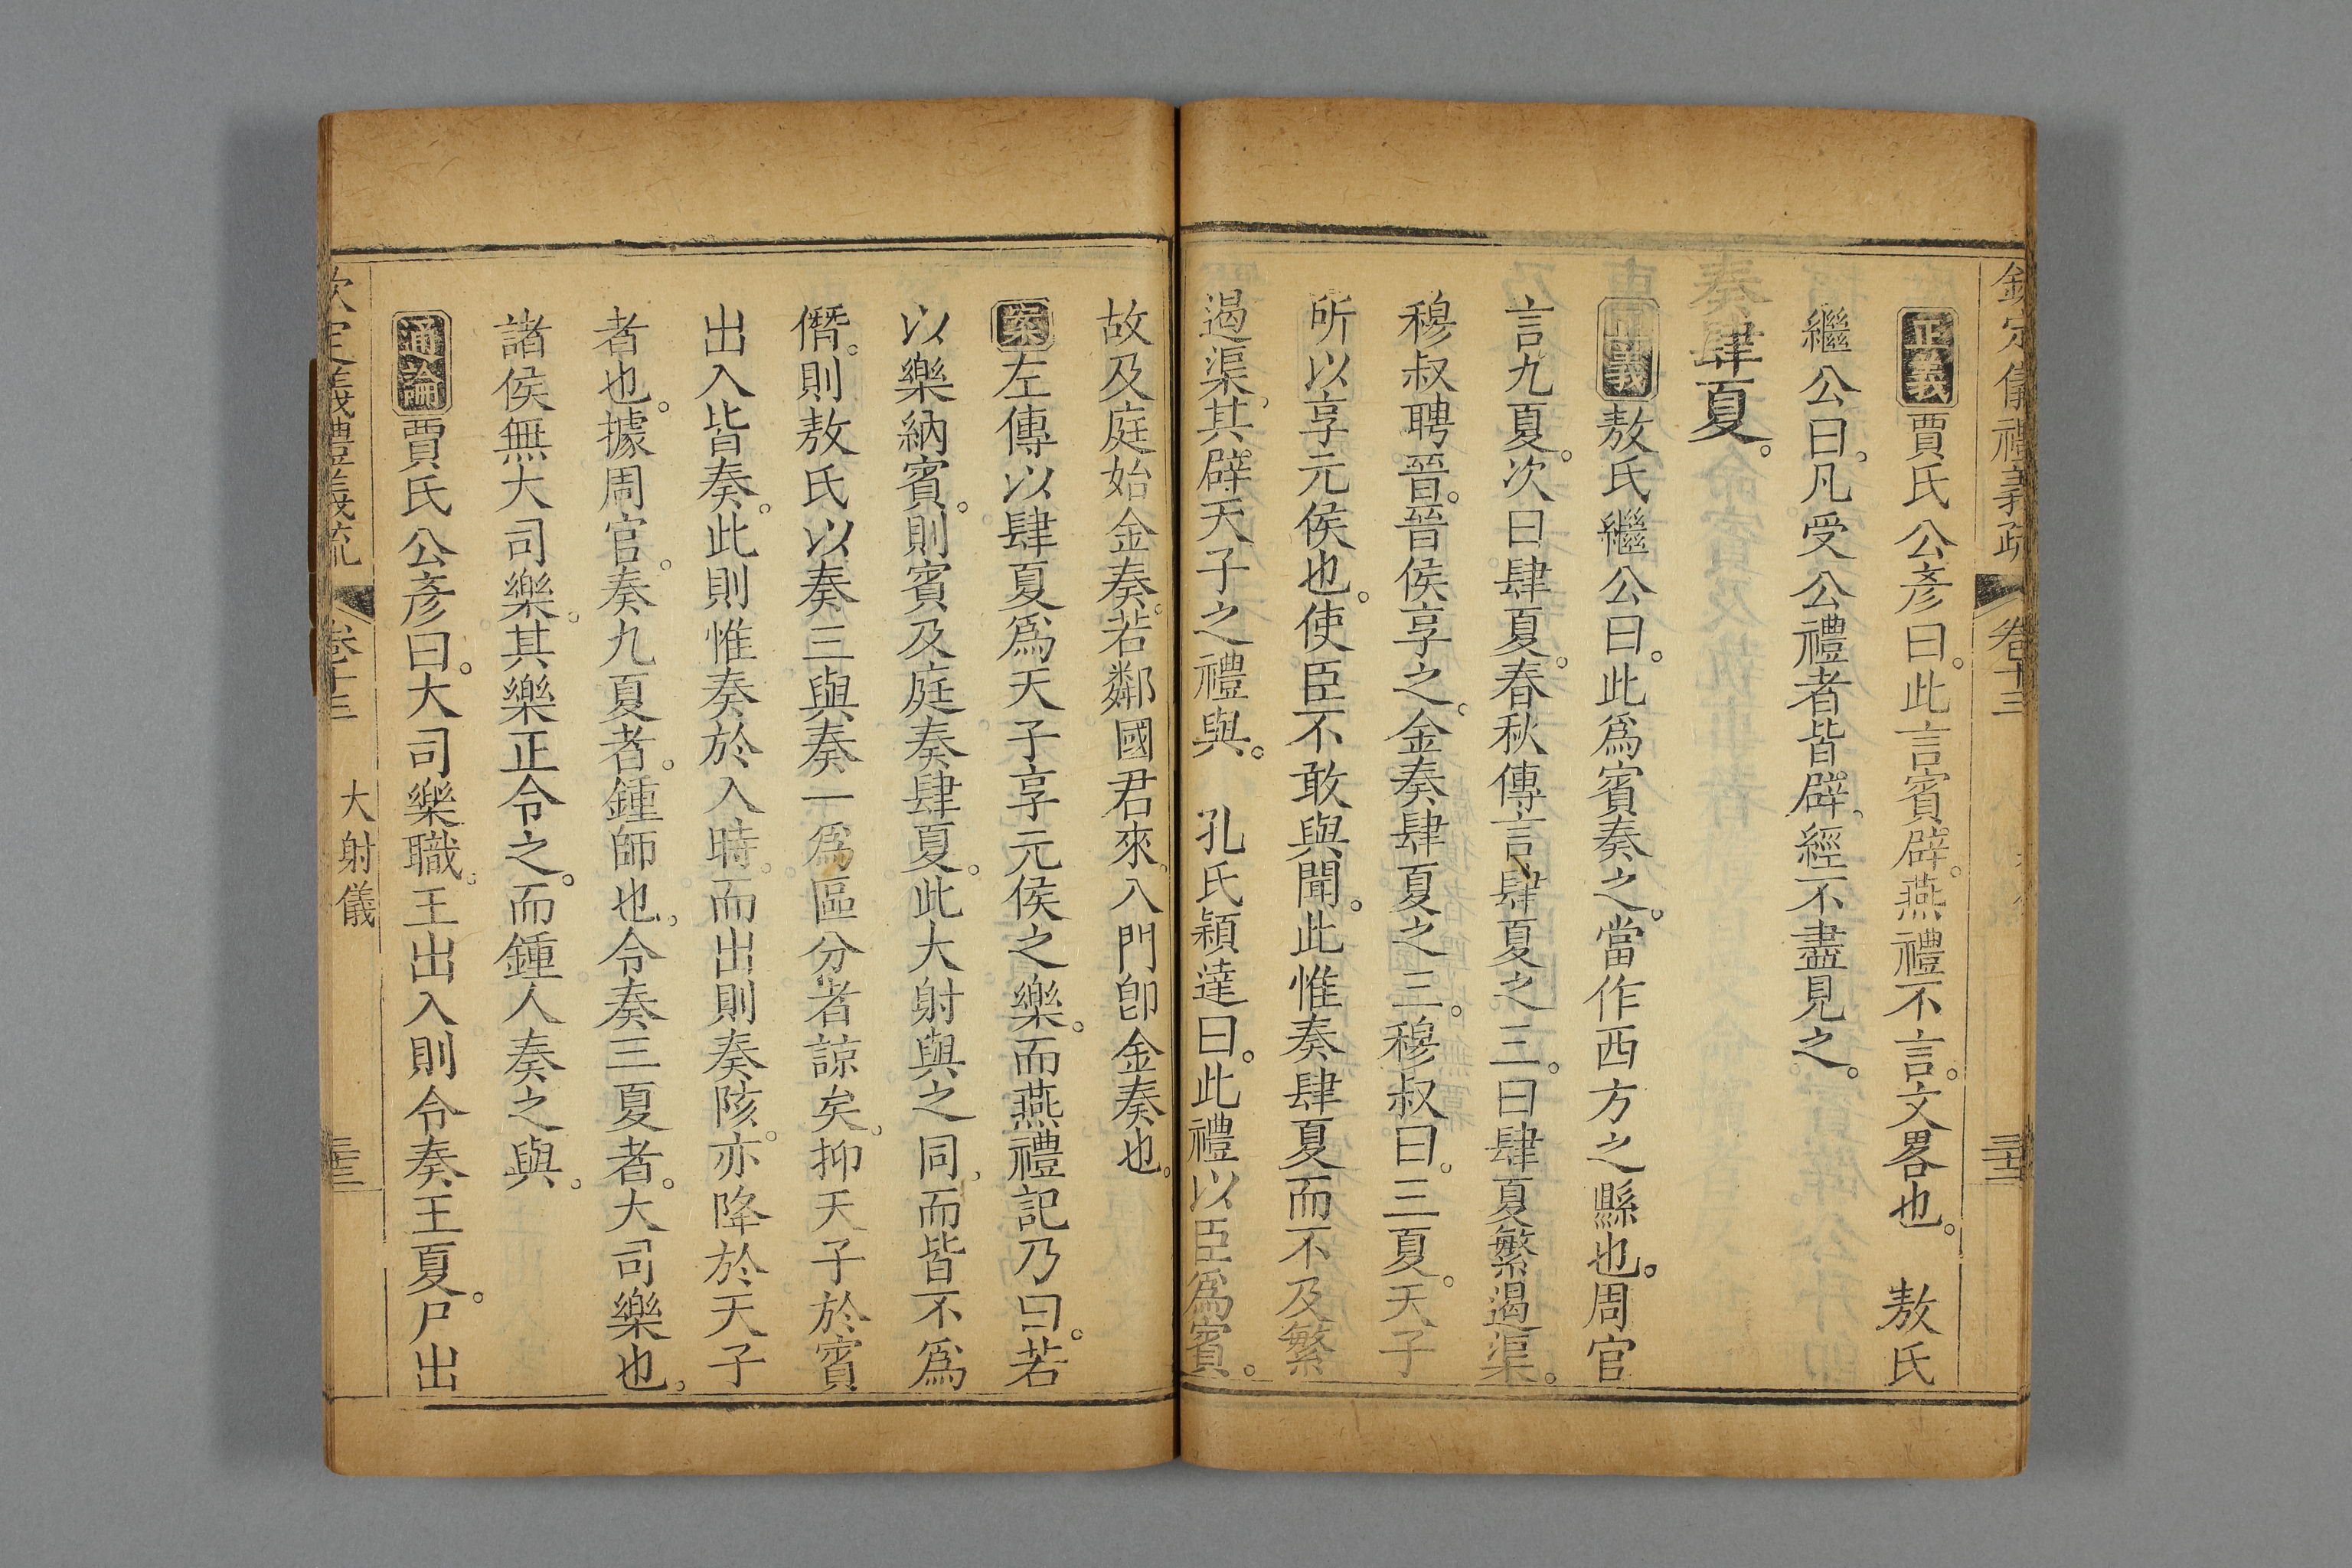 欽定儀禮義疏 卷十三
正義賈氏公彥曰。此言賓辟。燕禮不言。文畧也。 敖氏
繼公曰。凡受公禮者皆辟。經不盡見之。
奏肆夏。
正義敖氏繼公曰。此爲賓奏之。當作西方之縣也。周官
言九夏。次曰肆夏。春秋傳言肆夏之三。曰肆夏繁遏渠。
穆叔聘晉。晉侯享之。金奏肆夏之三。穆叔曰。三夏。天子
所以享元侯也。使臣不敢與聞。此惟奏肆夏而不及繁
遏渠。其辟天子之禮與。 孔氏穎達曰。此禮以臣爲賓。
故及庭始金奏。若鄰國君來。入門卽金奏也。
案左傳以肆夏爲天子享元侯之樂。而燕禮記乃曰。若
以樂納賓。則賓及庭奏肆夏。此大射與之同。而皆不爲
僭。則敖氏以奏三與奏一爲區分者諒矣。抑天子於賓
出入皆奏。此則惟奏於入時。而出則奏陔。亦降於天子
者也。據周官。奏九夏者。鍾師也。令奏三夏者。大司樂也。
諸侯無大司樂。其樂正令之。而鍾人奏之與。
通論賈氏公彥曰。大司樂職。王出入則令奏王夏。尸出
欽定儀禮義疏 卷十三 大射儀 三十三